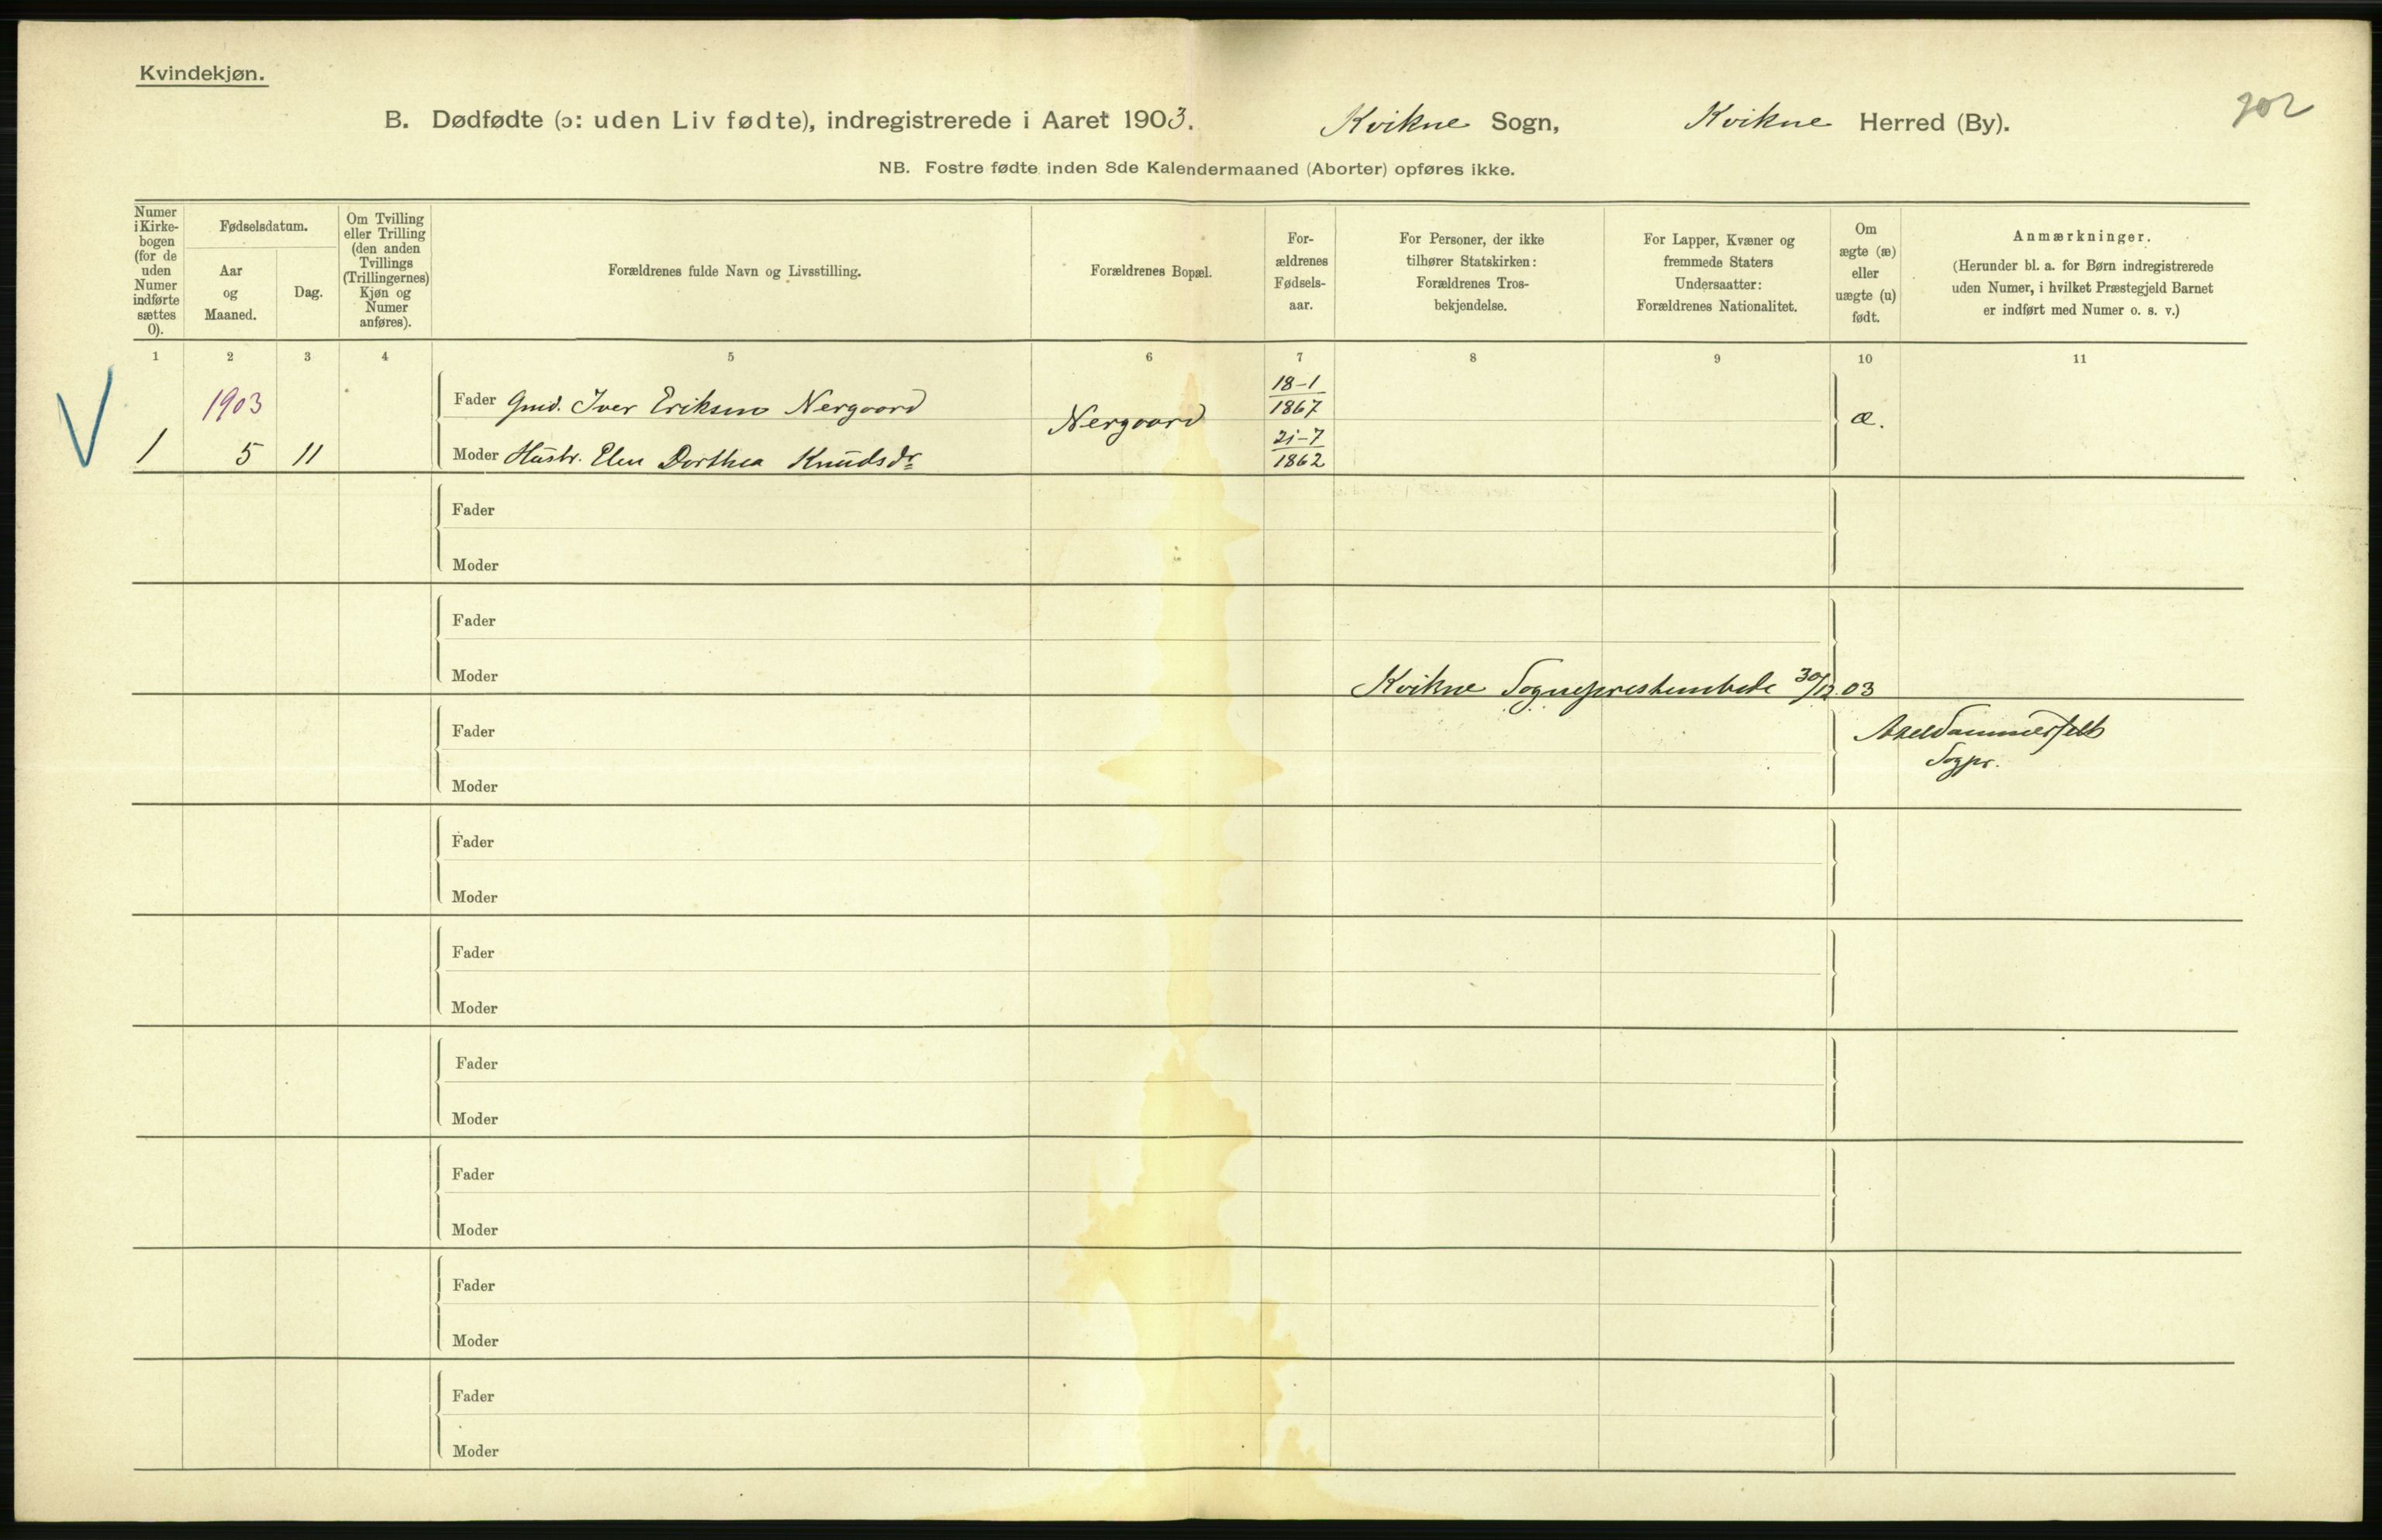 Kvindekjøn.
B. Dødfødte (ɔ: uden Liv fødte), indregistrerede i Aaret 1903. Kvikne Sogn, Kvikne Herred (By).
202
NB. Fostre fødte inden 8de Kalendermaaned (Aborter) opføres ikke.
Numer
i Kirke-
bogen
(for de
uden
Numer
indførte
sættes
0).
Fødselsdatum.
Aar
og
Maaned.
Dag.
Om Tvilling
eller Trilling
(den anden
Tvillings
(Trillingernes)
Kjøn og
Numer
anføres).
Forældrenes fulde Navn og Livsstilling.
Forældrenes Bopæl.
For-
ældrenes
Fødsels-
aar.
For Personer, der ikke
tilhører Statskirken:
Forældrenes Tros-
bekjendelse.
For Lapper, Kvæner og
fremmede Staters
Undersaatter:
Forældrenes Nationalitet.
Om
ægte (æ)
eller
uægte (u)
født.
Anmærkninger.
(Herunder bl. a. for Børn indregistrerede
uden Numer, i hvilket Præstegjeld Barnet
er indført med Numer o. s. v.)
1 2 3 4 5 6 7 8 9 10 11
V
1903
Fader Gmd. Iver Eriksen Nergaard
Nergaard
18-1
1867
æ.
1 5 11
Moder Hustr. Elen Dorthea Knudsdr
21-7
1862
Fader
Moder
Fader
Moder
Kvikne Sogneprestembede 30/12.03
Fader
Axel Dammerfelt
Sogpr.
Moder
Fader
Moder
Fader
Moder
Fader
Moder
Fader
Moder
Fader
Moder
Fader
Moder